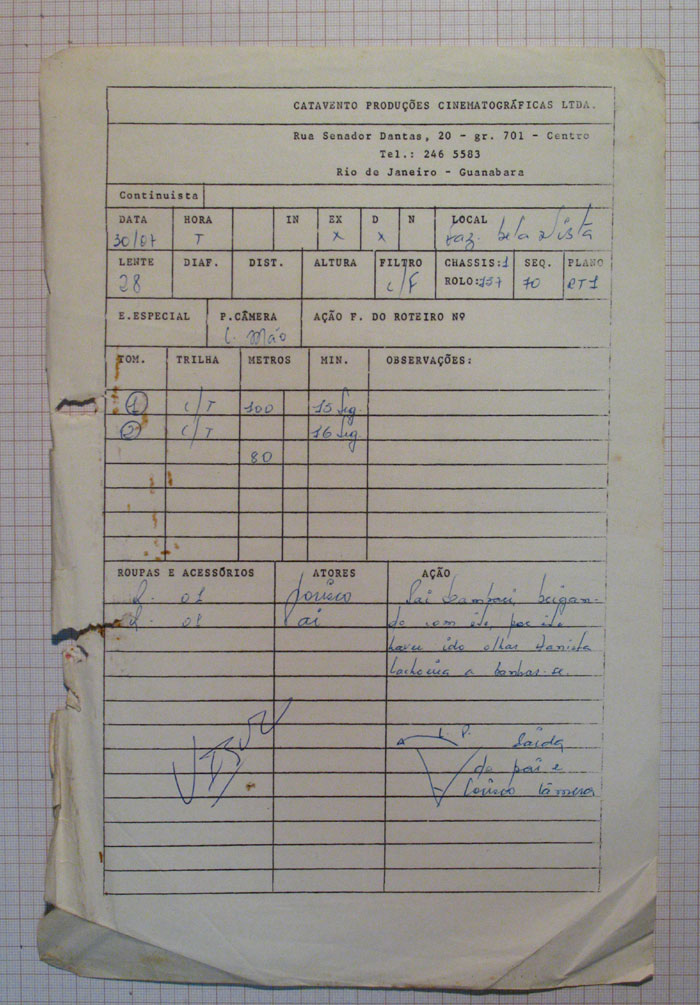 CATAVENTO PRODUÇÕES CINEMATOGRÁFICAS LTDA.
Rua Senador Dantas, 20 - gr. 701 - Centro
Tel.: 246 5583
Rio de Janeiro - Guanabara
Continuista
DATA HORA IN EX D N LOCAL
30/07 T x x Faz. bela Vista
LENTE DIAF. DIST. ALTURA FILTRO CHASSIS:1 SEQ. PLANO
28 C/F ROLO:157 70
E.ESPECIAL P.CÂMERA AÇÃO F. DO ROTEIRO Nº
C. Mão
TOM. TRILHA METROS MIN. OBSERVAÇÕES:
1 C/T 100 15 Seg.
2 C/T 16 Seg.
80
ROUPAS E ACESSÓRIOS ATORES AÇÃO
R. 01
R. 01
do com ele, por ele
haver ido olhar
a banhar-se.
L. P. Saída
do pai e
câmera